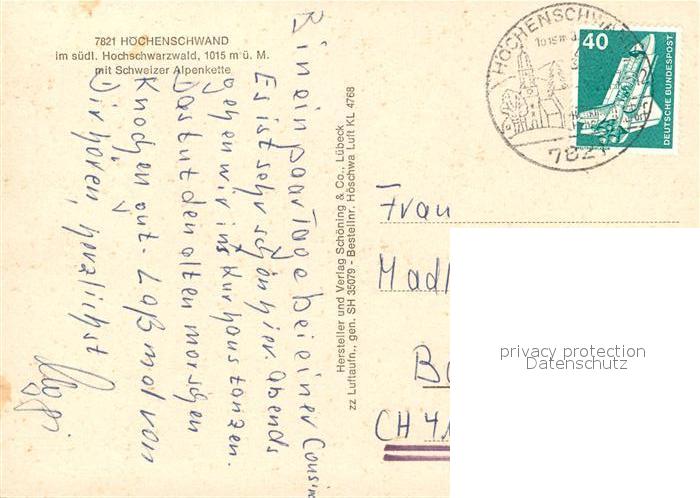 7821 HÖCHENSCHWAND
im südl. Hochschwarzwald, 1015 m ü. M.
mit Schweizer Alpenkette
Bin ein paar Tage bei einer Cousine
Es ist sehr schön hier abends
gehen wir ins Kurhaus tanzen.
Das tut den alten morschen
Knochen gut. Laß mal von
Dir hören, herzlichst
Hersteller und Verlag Schöning & Co., Lübeck
zz Luftaufn., gen. SH 35079 - Bestellnr. Höschwa Luft KL 4768
HÖCHENSCHWAND
1015 m ü.
7821
40
DEUTSCHE BUNDESPOST
Frau
Madl
Ba
CH 41
privacy protection
Datenschutz